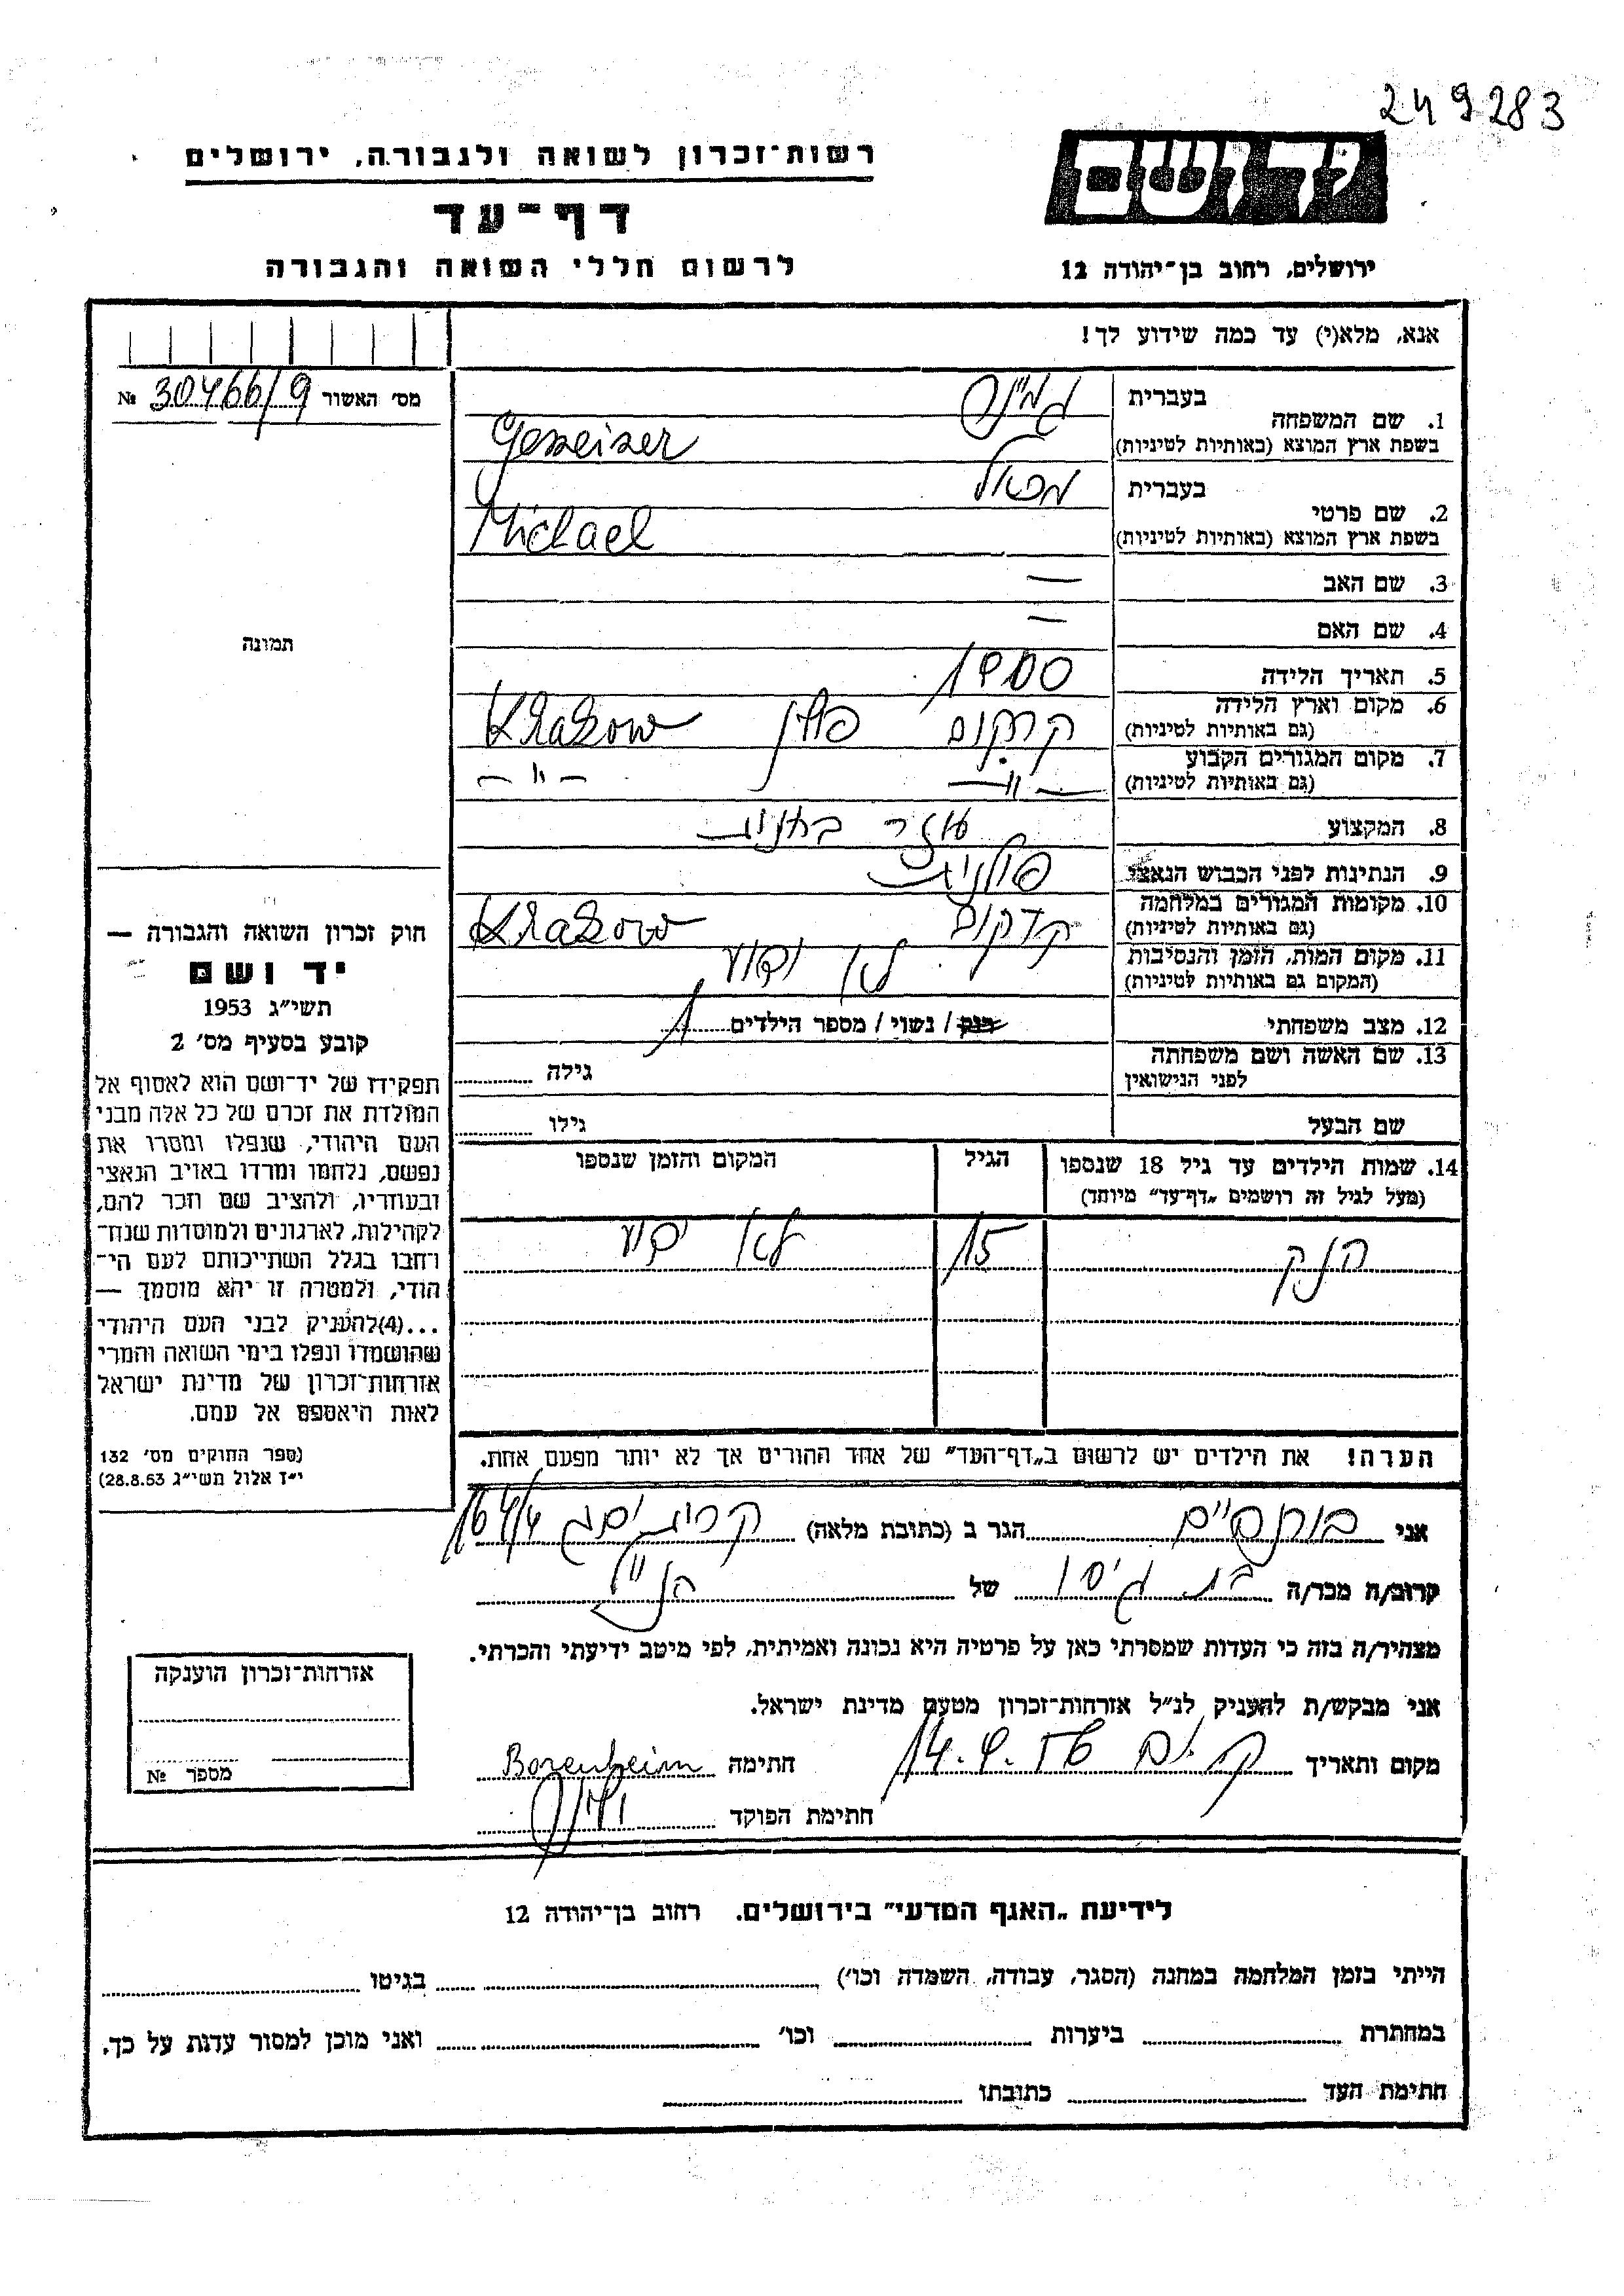 249283
יד ושם
רשות־זכרון לשואה ולגבורה, ירושלים
דף־עד
לרשום חללי השואה והגבורה
ירושלים, רחוב בן־יהודה 12
אנא, מלא(י) עד כמה שידוע לך!
מס׳ האשור 30466/9 №
1. שם המשפחה
בעברית
בשפת ארץ המוצא (באותיות לטיניות)
2. שם פרטי
בעברית
בשפת ארץ המוצא (באותיות לטיניות) Michael
3. שם האב —
4. שם האם —
5. תאריך הלידה 1900
6. מקום וארץ הלידה
(גם באותיות לטיניות) פולין Krakow
7. מקום המגורים הקבוע
(גם באותיות לטיניות) — " — — " —
8. המקצוע
9. הנתינות לפני הכבוש הנאצי פולנית
10. מקומות המגורים במלחמה
(גם באותיות לטיניות) Krakow
11. מקום המות, הזמן והנסיבות
(המקום גם באותיות לטיניות) לא ידוע
12. מצב משפחתי רוק / נשוי / מספר הילדים 1
13. שם האשה ושם משפחתה
לפני הנישואין גילה
שם הבעל גילו
14. שמות הילדים עד גיל 18 שנספו
(מעל לגיל זה רושמים „דף־עד״ מיוחד)
הגיל
המקום והזמן שנספו
הנק 15 לא ידוע
הערה! את הילדים יש לרשום ב„דף־העד״ של אחד ההורים אך לא יותר מפעם אחת.
תמונה
חוק זכרון השואה והגבורה —
יד ושם
תשי״ג 1953
קובע בסעיף מס׳ 2
תפקידו של יד־ושם הוא לאסוף אל
המולדת את זכרם של כל אלה מבני
העם היהודי, שנפלו ומסרו את
נפשם, נלחמו ומרדו באויב הנאצי
ובעוזריו, ולהציב שם וזכר להם,
לקהילות, לארגונים ולמוסדות שנח־
רחבו בגלל השתייכותם לעם הי־
הודי, ולמטרה זו יהא מוסמך —
...(4)להעניק לבני העם היהודי
שהושמדו ונפלו בימי השואה והמרי
אזרחות־זכרון של מדינת ישראל
לאות היאספם אל עמם.
(ספר החוקים מס׳ 132
י״ז אלול תשי״ג 28.8.53)
אני הגר ב (כתובת מלאה) 164/4
קרוב/ה מכר/ה של הנ״ל
מצהיר/ה בזה כי העדות שמסרתי כאן על פרטיה היא נכונה ואמיתית, לפי מיטב ידיעתי והכרתי.
אני מבקש/ת להעניק לנ״ל אזרחות־זכרון מטעם מדינת ישראל.
מקום ותאריך ק. ים 14.4.56 חתימה Borenheim
חתימת הפוקד
אזרחות־זכרון הוענקה
מספר №
לידיעת „האגף המדעי״ בירושלים. רחוב בן־יהודה 12
הייתי בזמן המלחמה במחנה (הסגר, עבודה, השמדה וכו׳) בגיטו
במחתרת ביערות וכו׳ ואני מוכן למסור עדות על כך.
חתימת העד כתובתו